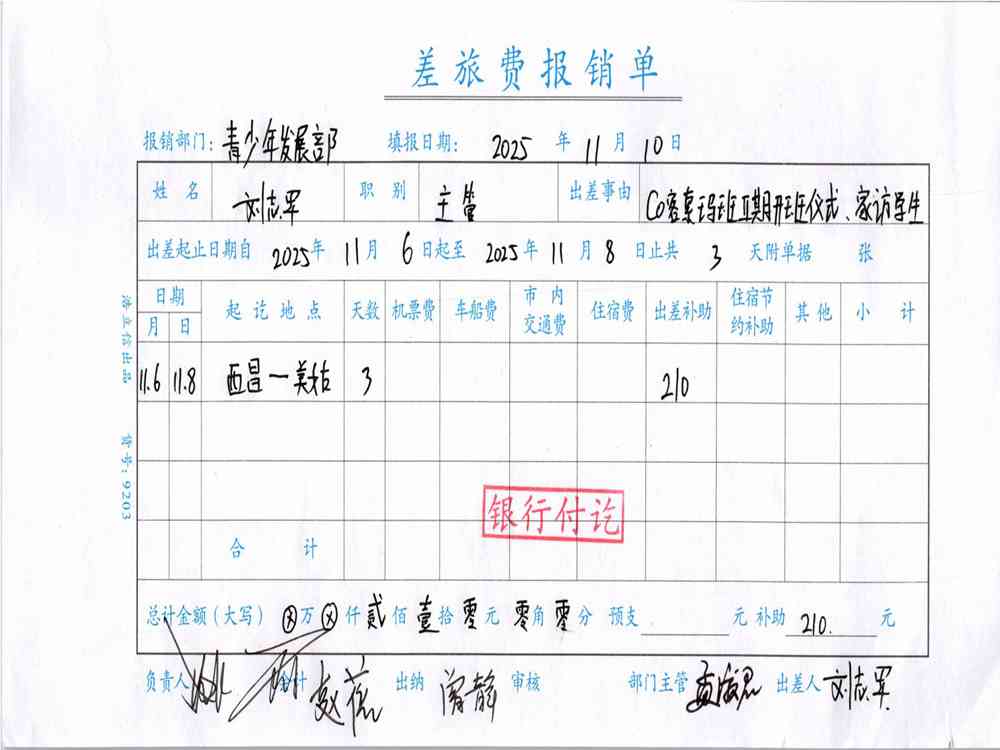 差旅费报销单
报销部门：青少年发展部 填报日期：2025 年 11 月 10 日
姓名 刘志军 职别 主管 出差事由 班Ⅱ期开班仪式、家访学生
出差起止日期自 2025 年 11 月 6 日起至 2025 年 11 月 8 日止共 3 天附单据 张
日期 起讫地点 天数 机票费 车船费 市内交通费 住宿费 出差补助 住宿节约补助 其他 小计
月 日
11.6 11.8 西昌—美姑 3 210
银行付讫
合计
总计金额（大写）⊗万⊗仟贰佰壹拾零元零角零分 预支 元 补助 210. 元
负责人 会计 赵 出纳 静 审核 部门主管 出差人 刘志军
浩立信出品 货号：9203